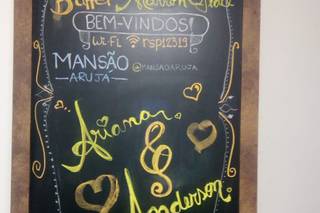 Buffet Marron Glacê
BEM-VINDOS!
Wi-Fi rsp12319
MANSÃO
ARUJÁ
@MANSAOARUJA
Ariana
&
Anderson